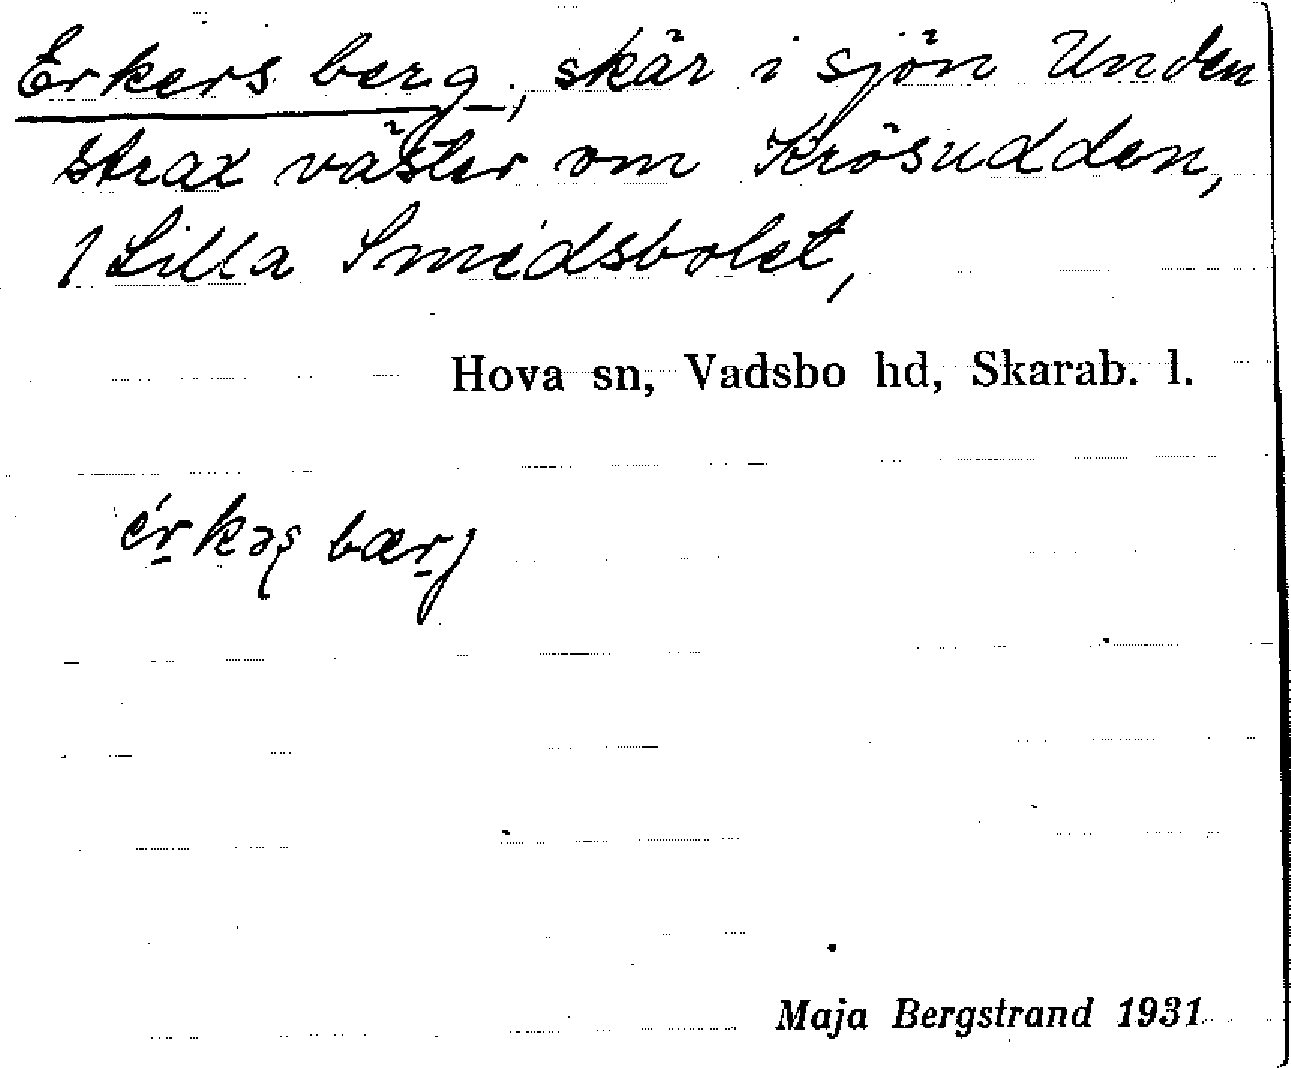 Erkers berg, skär i sjön Unden
strax väster om Krösudden,
1 Lilla Smedsbolet,
Hova sn, Vadsbo hd, Skarab. l.
bærj
Maja Bergstrand 1931